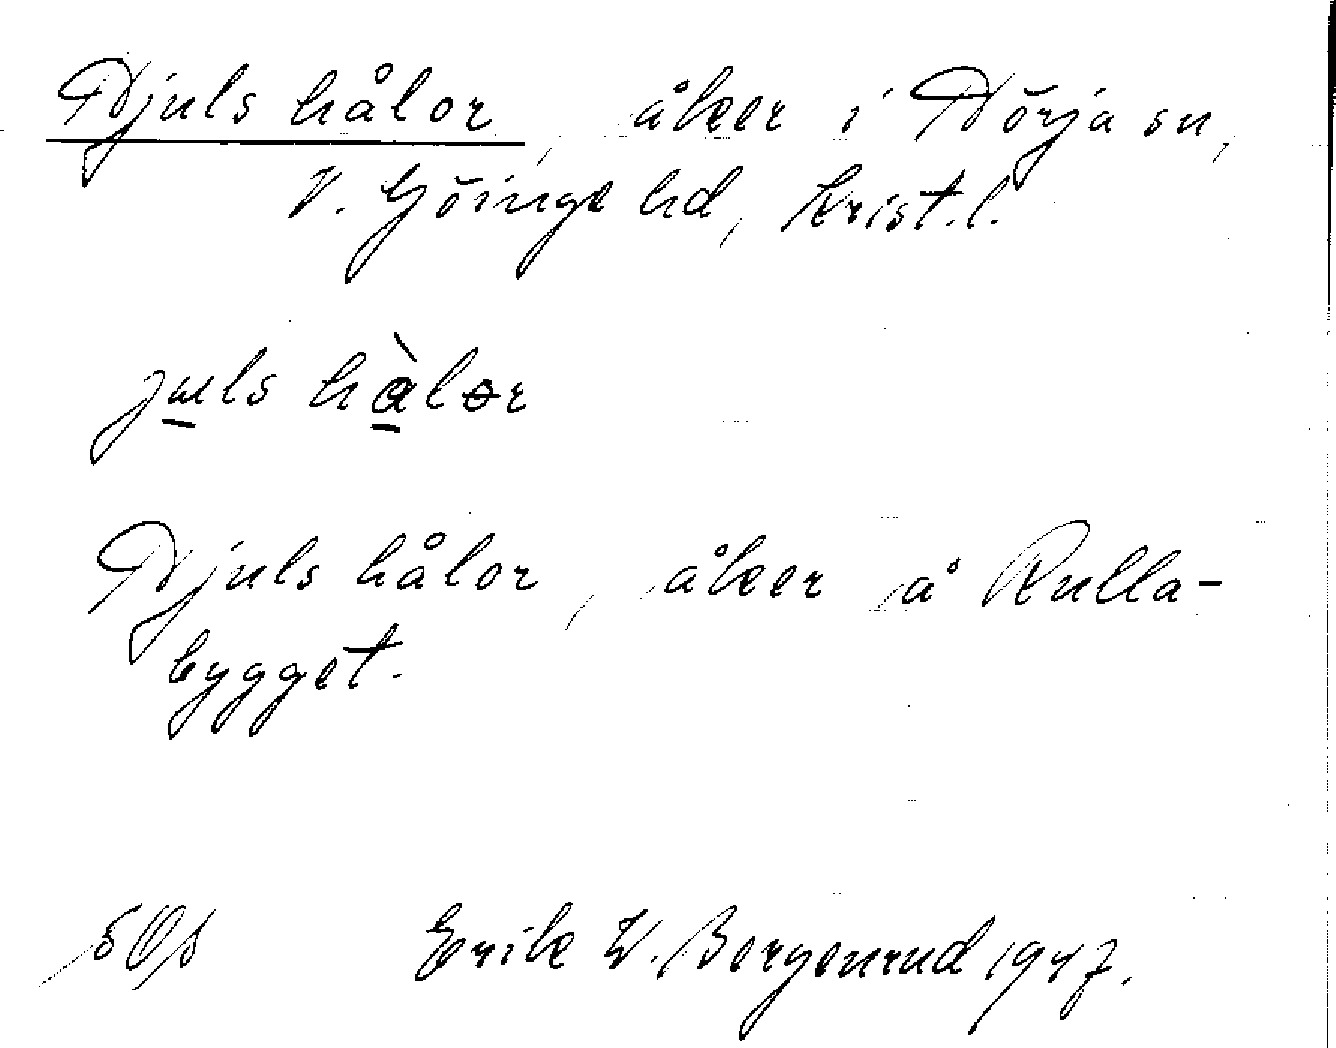 Djuls hålor, åker i Hörja sn,
V. Göinge hd, Krist.l.
juls hàlor
Djuls hålor, åker å Rulla-
bygget.
Erik W. Bergenrud 1947.